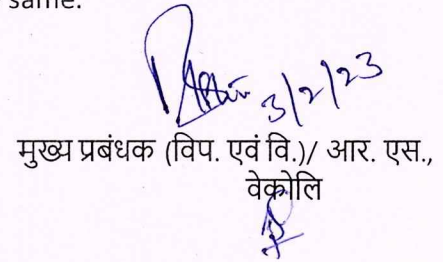 same.
3/2/23
मुख्य प्रबंधक (विप. एवं वि.)/ आर. एस.,
वेकोलि